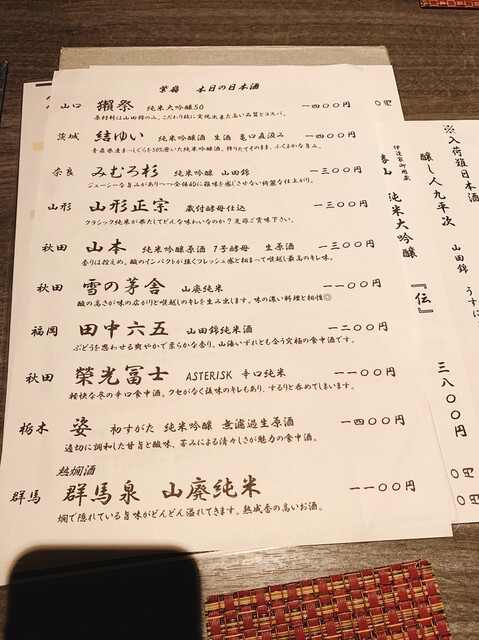 紫扇 本日の日本酒
山口 獺祭 純米大吟醸50 一四〇〇円
原材料は山田錦のみ。こだわり故に実現出来た高い品質とコスパ。
茨城 結ゆい 純米吟醸酒 生酒 亀口直汲み 一四〇〇円
青森県産まっしぐらを50%磨いた純米吟醸酒。搾りたてそのまま、ふくよかな旨み。
奈良 みむろ杉 純米吟醸 山田錦 一三〇〇円
ジューシーな旨みがありつつ全体的に雑味を感じさせない綺麗な仕上がり。
山形 山形正宗 蔵付酵母仕込 一三〇〇円
クラシック純米が果たしてどんな味わいなのか？是非ご賞味下さい。
秋田 山本 純米吟醸原酒 7号酵母 生原酒 一三〇〇円
香りは控えめ、酸のインパクトが強くフレッシュ感と相まって喉越し最高のキレ味。
秋田 雪の茅舎 山廃純米 一一〇〇円
酸の高さが味の広がりと喉越しのキレを生み出します。味の濃い料理と相性◎
福岡 田中六五 山田錦純米酒 一二〇〇円
ぶどうを思わせる爽やかで柔らかな香り。山海いずれとも合う究極の食中酒です。
秋田 榮光冨士 ASTERISK 辛口純米 一一〇〇円
軽快な冬の辛口食中酒。クセがなく後味のキレもあり、するりと呑めてしまいます。
栃木 姿 初すがた 純米吟醸 無濾過生原酒 一四〇〇円
適切に調和した甘旨と酸味、苦みによる清々しさが魅力の食中酒。
熱燗酒
群馬 群馬泉 山廃純米 一一〇〇円
燗で隠れている旨味がどんどん溢れてきます。熟成香の高いお酒。
※入荷限定日本酒
醸し人九平次 山田錦 うすに
伊達家御用蔵
勝山 純米大吟醸 『伝』 三八〇〇円
〇円
〇円
〇円